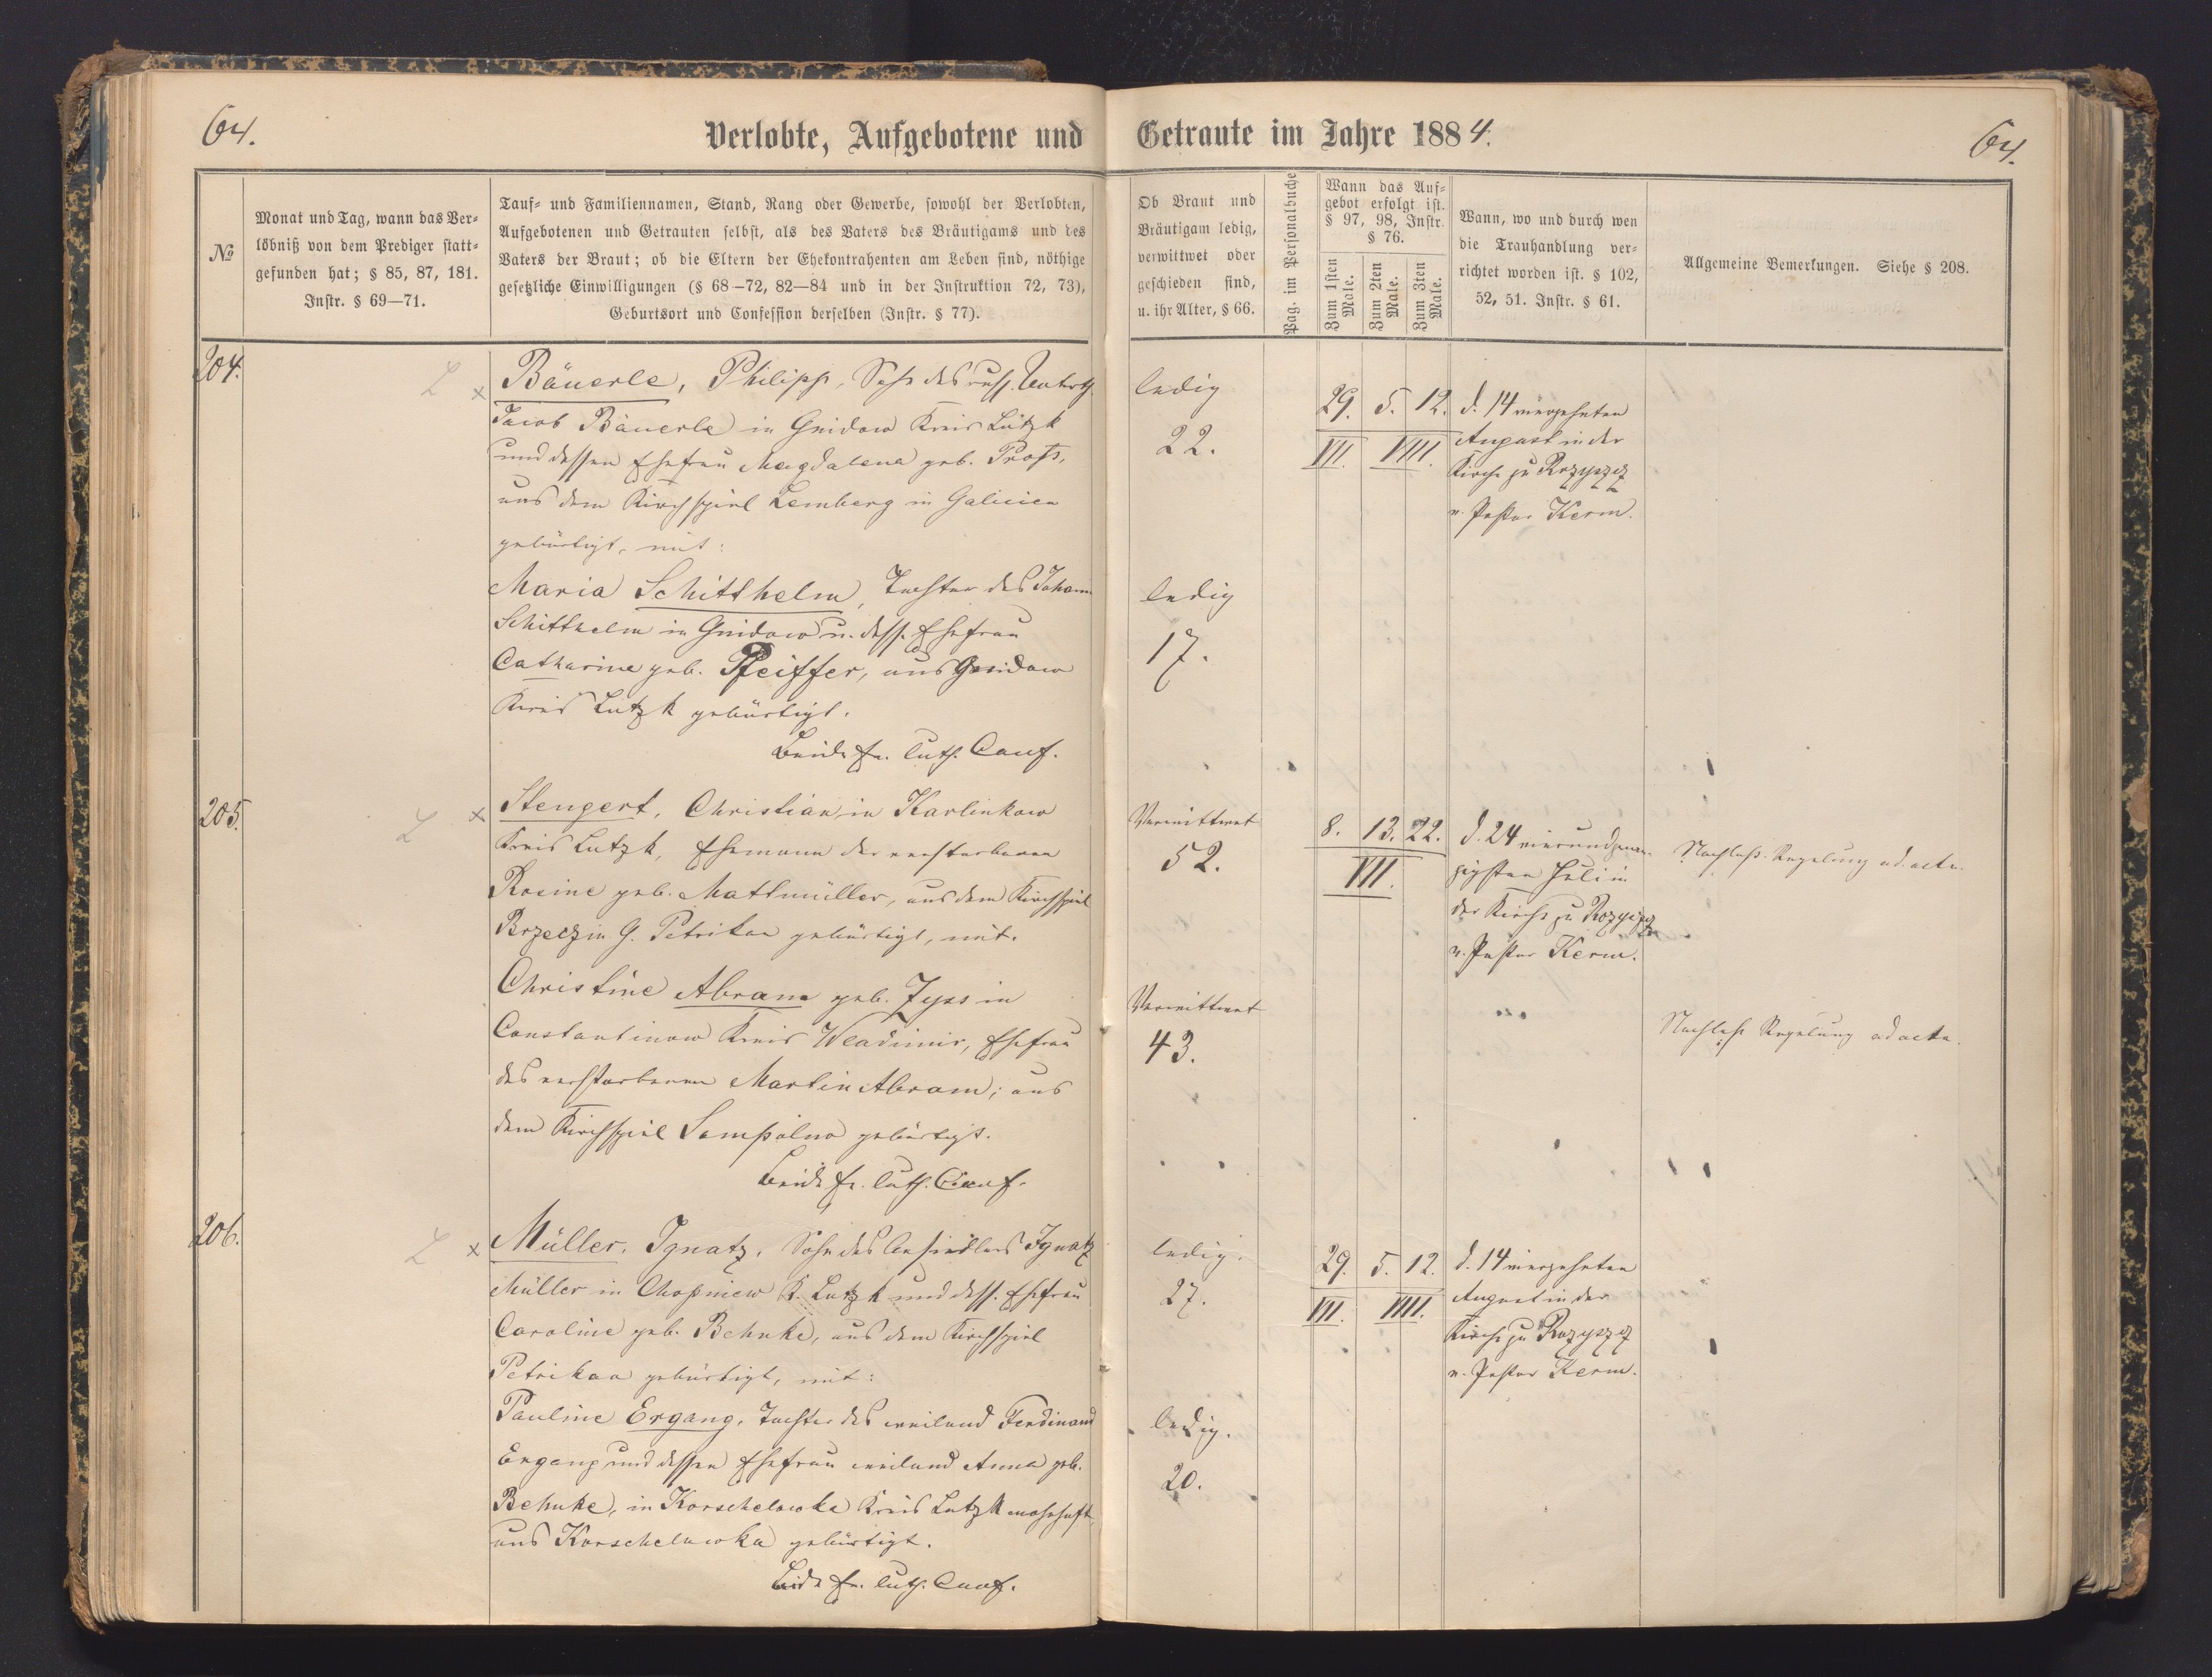 64.
Verlobte, Aufgebotene und
Getraute im Jahre 1884.
64.
№
Monat und Tag, wann das Ver-
löbniß von dem Prediger statt-
gefunden hat; § 85, 87, 181.
Instr. § 69—71.
Tauf- und Familiennamen, Stand, Rang oder Gewerbe, sowohl der Verlobten,
Aufgebotenen und Getrauten selbst, als des Vaters des Bräutigams und des
Vaters der Braut; ob die Eltern der Ehekontrahenten am Leben sind, nöthige
gesetzliche Einwilligungen (§ 68—72, 82—84 und in der Instruktion 72, 73),
Geburtsort und Confession derselben (Instr. § 77).
Ob Braut und
Bräutigam ledig,
verwittwet oder
geschieden sind,
u. ihr Alter, § 66.
Pag. im Personalbuche
Wann das Auf-
gebot erfolgt ist.
§ 97, 98, Instr.
§ 76.
Zum 1sten
Male.
Zum 2ten
Male.
Zum 3ten
Male.
Wann, wo und durch wen
die Trauhandlung ver-
richtet worden ist. § 102,
52, 51. Instr. § 61.
Allgemeine Bemerkungen. Siehe § 208.
204.
L x
Bäuerle, Philipp, Sohn des russ. Unterth.
Jacob Bäuerle in Gnidow Kreis Lutzk
und dessen Ehefrau Magdalena geb.
aus dem Kirchspiel Lemberg in Galicien
gebürtigt, mit:
Maria Schitthelm, Tochter des Johann
Schitthelm in Gnidow u. dess. Ehefrau
Catharine geb. Pfeiffer, aus Gnidow
Kreis Lutzk gebürtigt.
Beide ev. luth. Conf.
ledig
22.
ledig
17.
29. 5. 12.
VII. VIII.
d. 14 vierzehnten
August in der
Kirche zu Rozyszcz
v. Pastor Kerm.
205.
L x
Stengert, Christian, in Karlinkow
Kreis Lutzk, Ehemann der verstorbenen
Rosine geb. Mattmüller, aus dem Kirchspiel
Brzeczin G. Petrikau gebürtigt, mit.
Christine Abram geb. Zyss in
Constantinow Kreis Wladimir, Ehefrau
des verstorbenen Martin Abram; aus
dem Kirchspiel Sompolno gebürtigt.
Beide ev. luth. Conf.
Verwittwet
52.
Verwittwet
43.
8. 13. 22.
VII.
d. 24 vierundzwan-
zigsten Juli in
der Kirche zu Rozyszcz
v. Pastor Kerm.
Nachlaß-Regelung ad acta.
Nachlaß Regelung ad acta.
206.
L x
Müller, Ignatz, Sohn des Ansiedlers Ignatz
Müller in Chopniew K. Lutzk und dess. Ehefrau
Caroline geb. Behnke, aus dem Kirchspiel
Petrikau gebürtigt, mit:
Pauline Ergang, Tochter des weiland Ferdinand
Ergang und dessen Ehefrau weiland Anna geb.
Behnke, in Korschelowka Kreis Lutzk wohnhaft,
aus Korschelowka gebürtigt.
Beide ev. luth. Conf.
ledig.
27.
ledig.
20.
29. 5. 12.
VII. VIII.
d. 14 vierzehnten
August in der
Kirche zu Rozyszcz
v. Pastor Kerm.